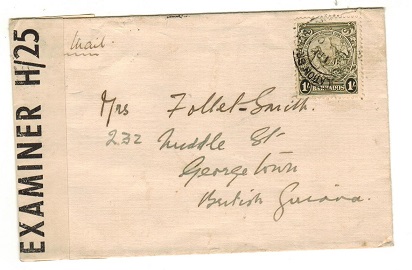 EXAMINER H/25
Mail
1/- BARBADOS 1/-
Mrs Follet-Smith.
232 Middle St
Georgetown
British Guiana.